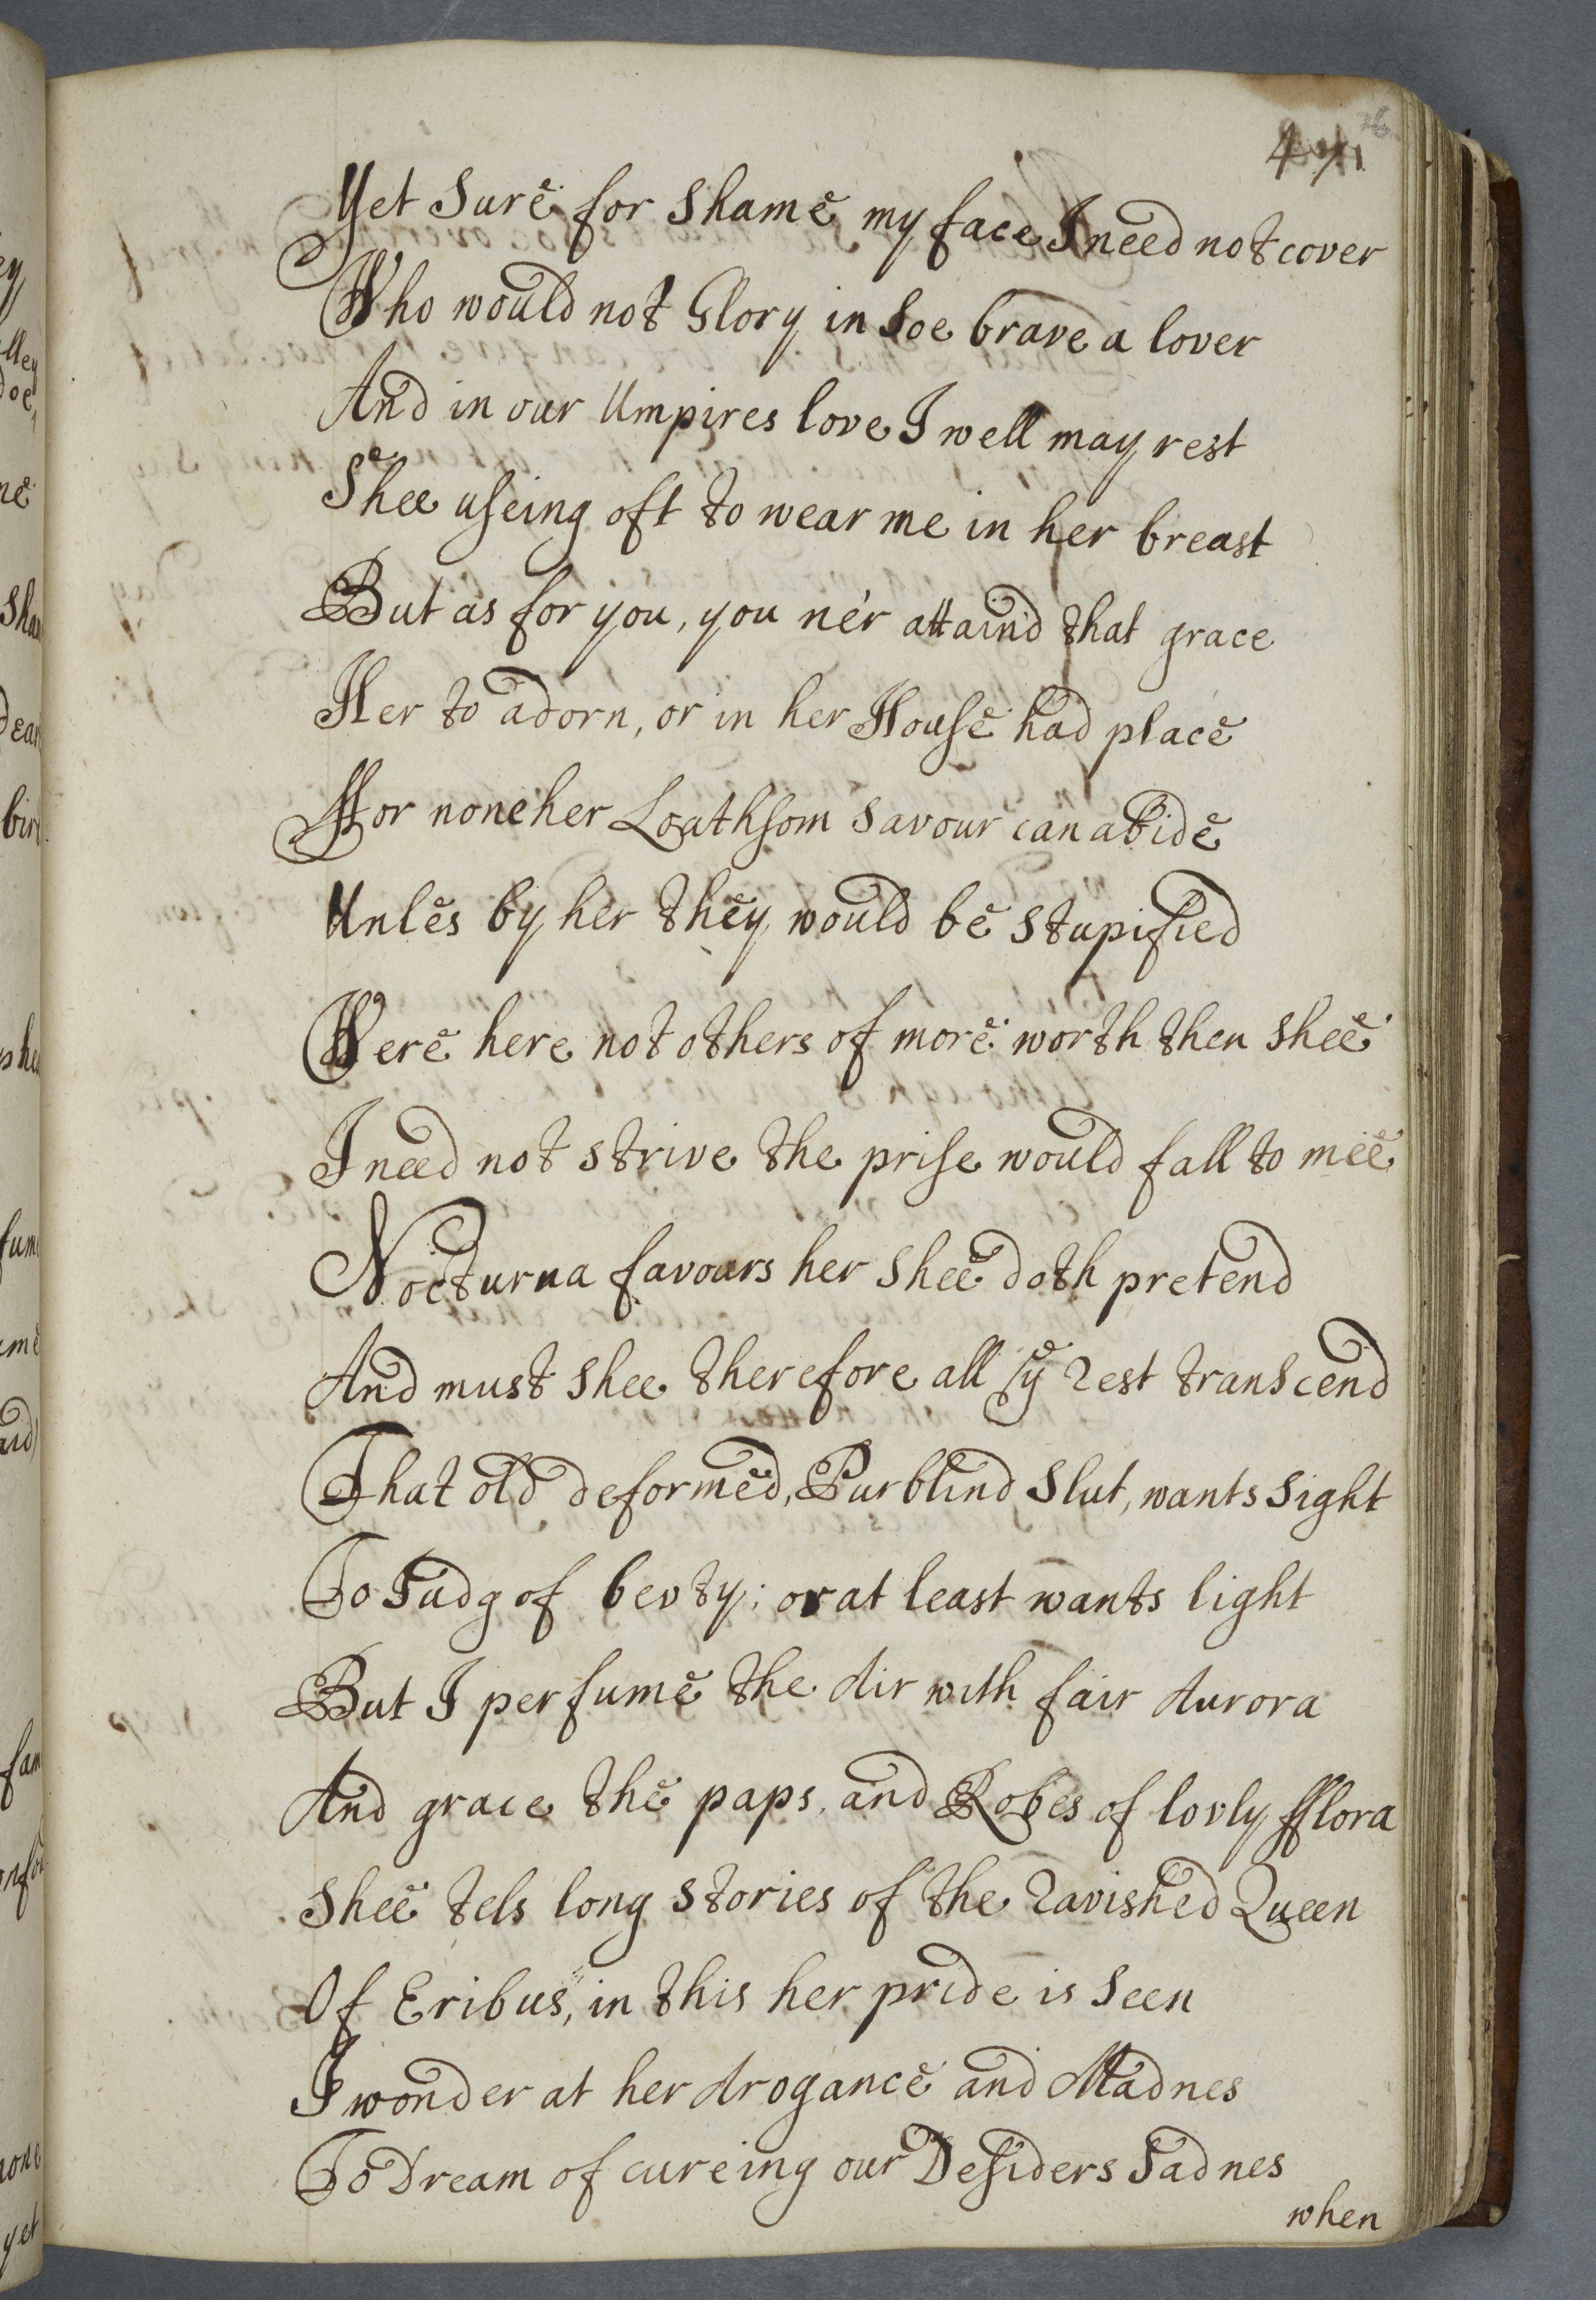 Yet Sure for Shame my face I need not cover
Who would not Glory in Soe brave a lover
And in our Umpires love I well may rest
Shee useing oft to wear me in her breast
But as for you, you ne'r attaind that grace
Her to adorn, or in her House had place
ffor none her Loathsom Savour can abide
Unles by her they would be Stupified
Were here not others of more worth then Shee
I need not Strive the prise would fall to mee
Nocturna favours her Shee doth pretend
And must Shee therefore all ye Rest transcend
That old deformed, Purblind Slut, wants Sight
To Judg of bevty; or at least wants light
But I perfume the Air with fair Aurora
And grace the paps, and Robes of lovly fflora
Shee tels long Stories of the Ravished Queen
Of Eribus, in this her pride is Seen
I wonder at her Arogance and Madnes
To Dream of cureing our Desiders Sadnes
when